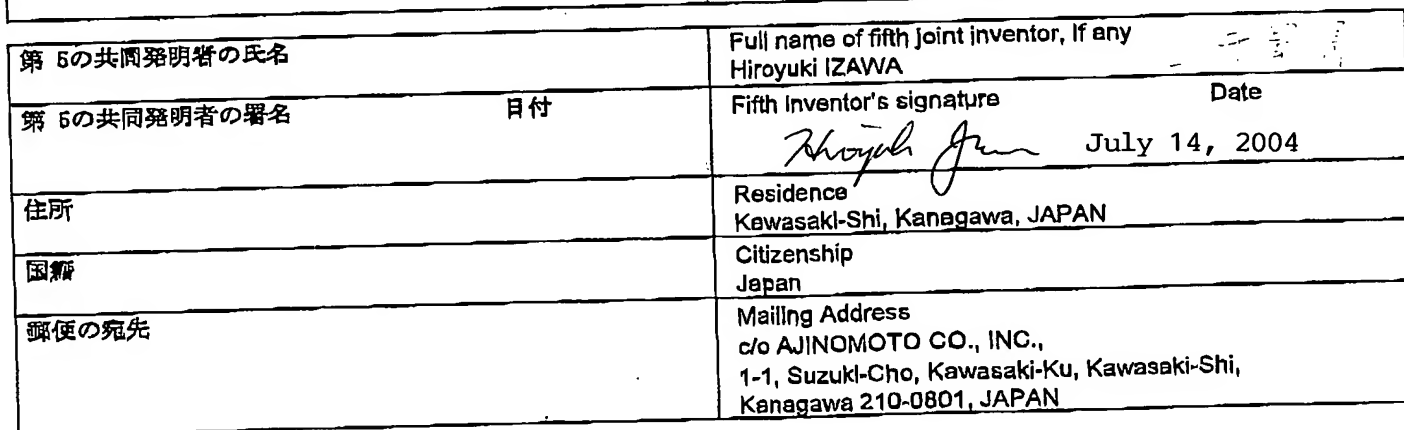 第 5の共同発明者の氏名
Full name of fifth joint inventor, If any
Hiroyuki IZAWA
第 5の共同発明者の署名 日付
Fifth Inventor's signature Date
July 14, 2004
住所
Residence
Kawasaki-Shi, Kanagawa, JAPAN
国籍
Citizenship
Japan
郵便の宛先
Mailing Address
c/o AJINOMOTO CO., INC.,
1-1, Suzuki-Cho, Kawasaki-Ku, Kawasaki-Shi,
Kanagawa 210-0801, JAPAN